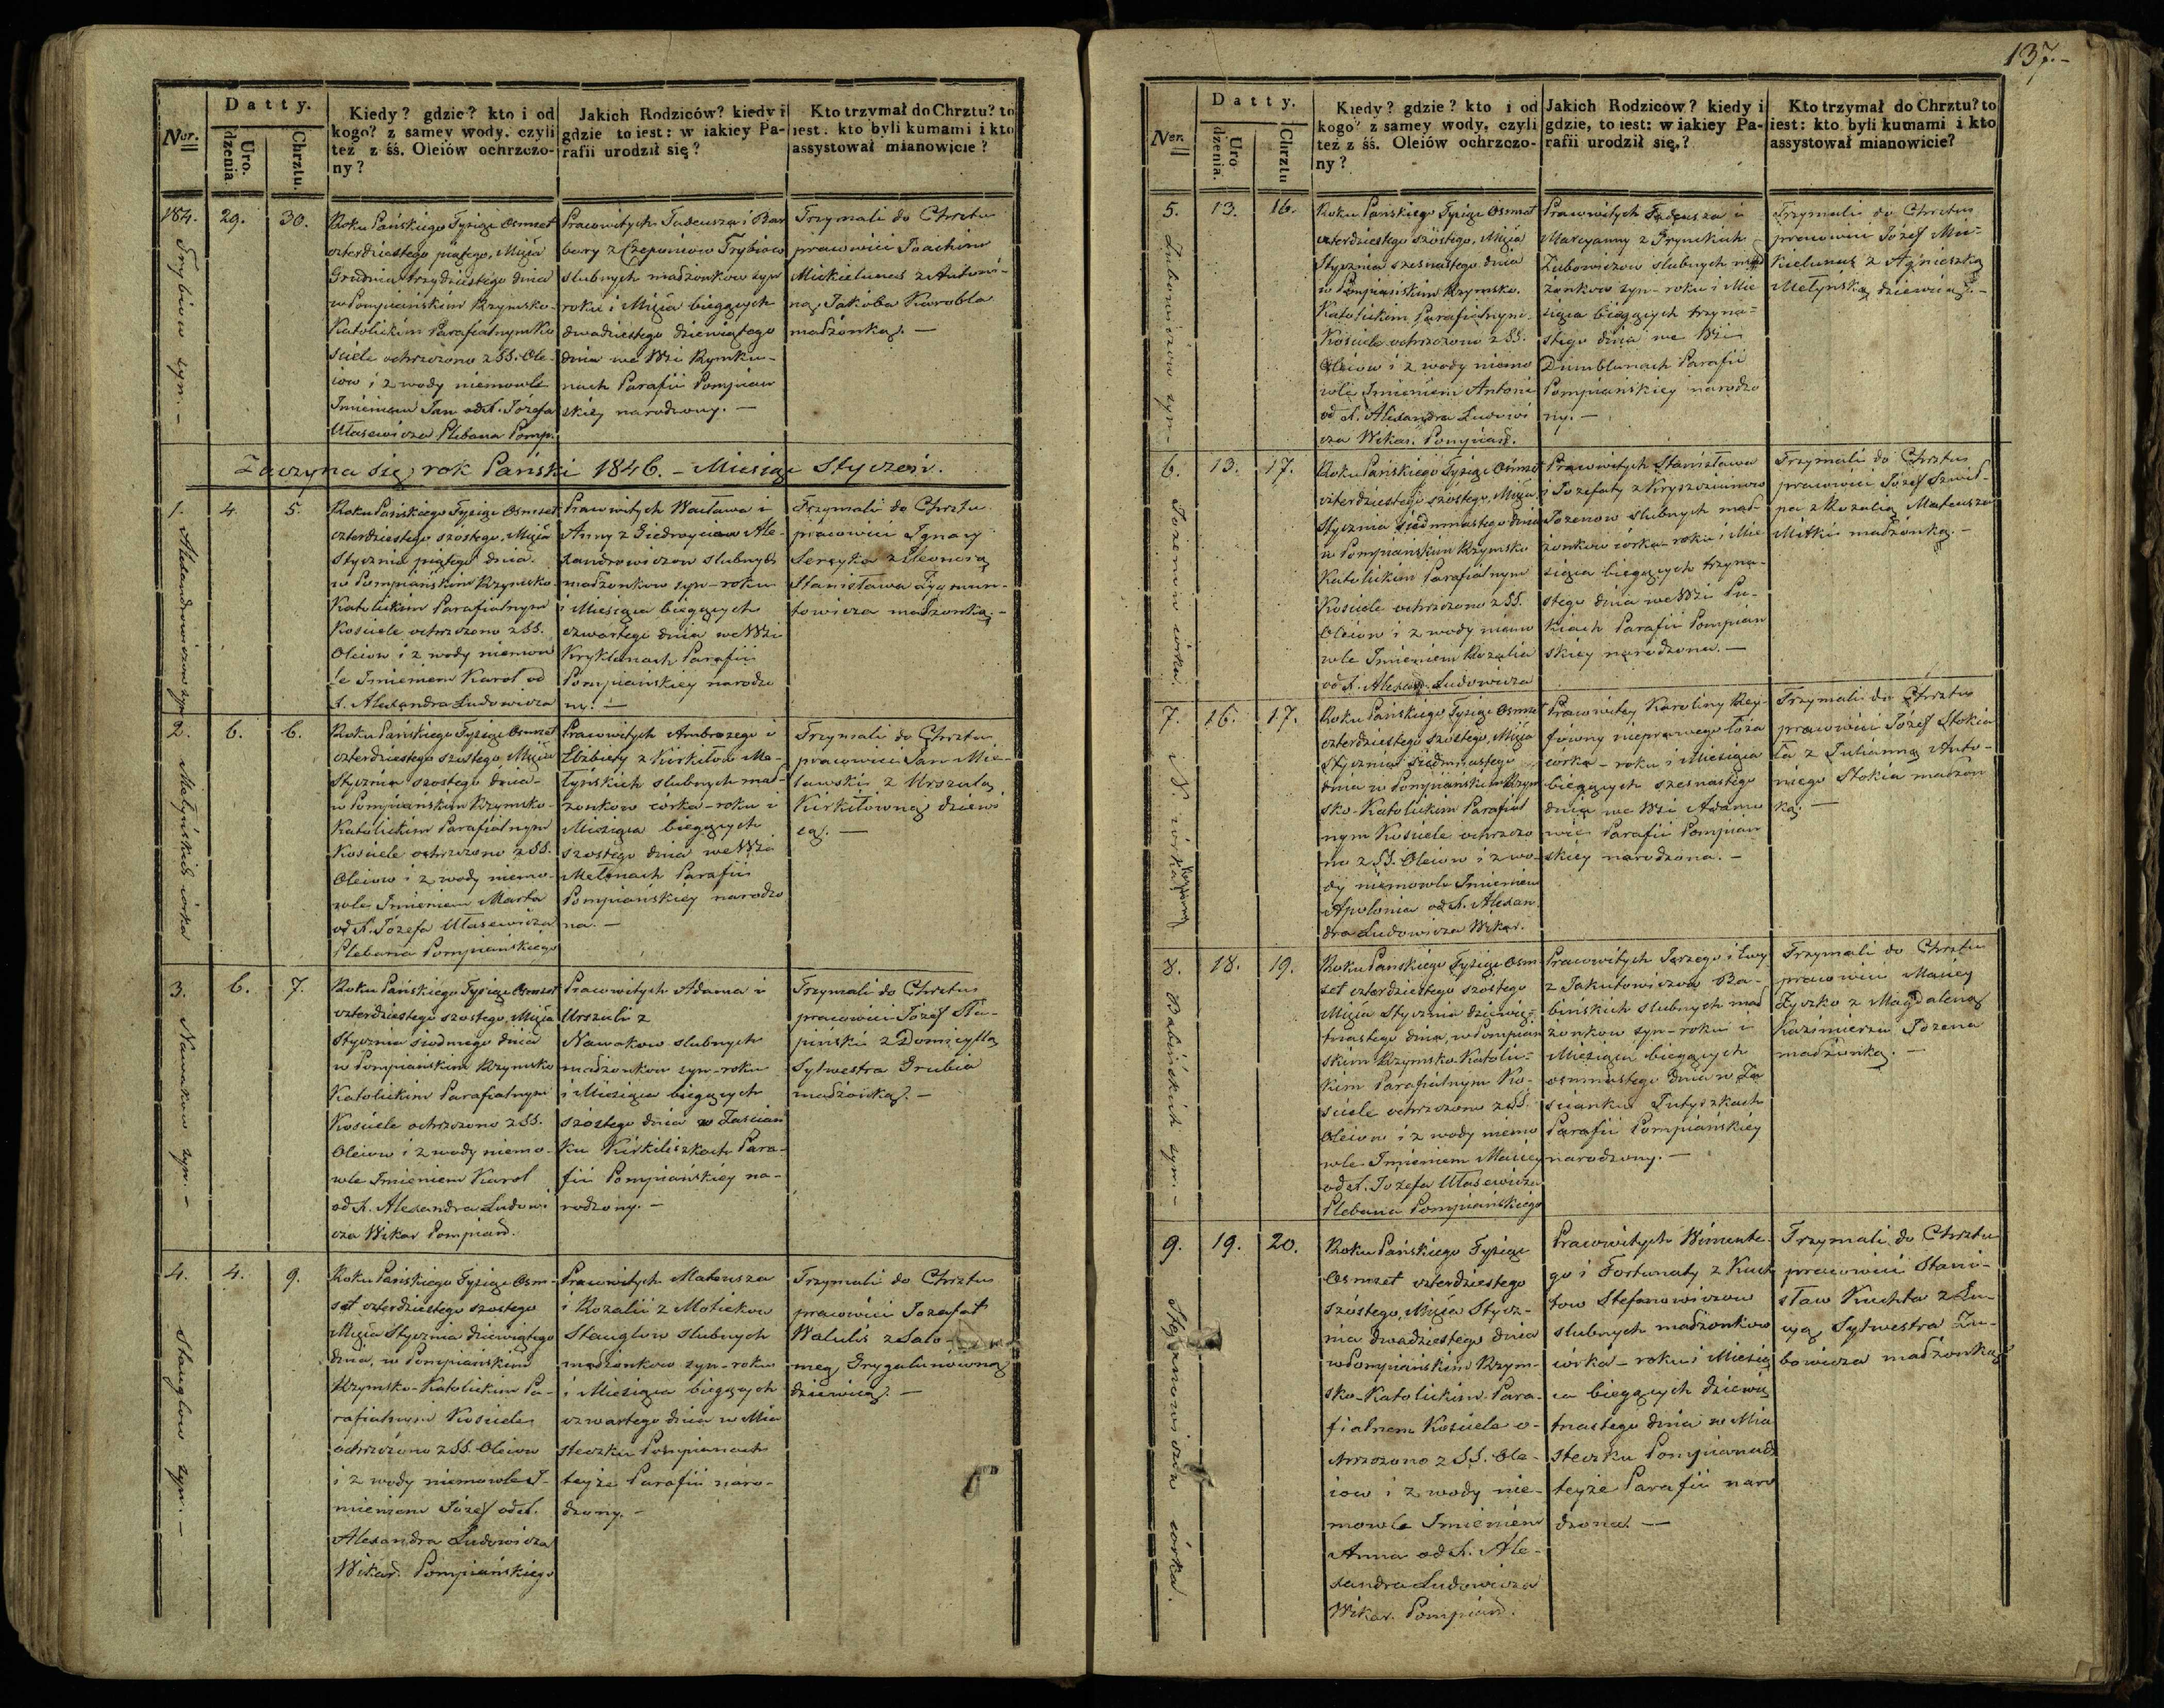 137.-
Ner.
Datty.
Urodzenia.
Chrztu.
Kiedy? gdzie? kto i od
kogo? z samey wody, czyli
też z śś. Oleiów ochrzczo-
ny?
Jakich Rodziców? kiedy i
gdzie to iest: w iakiey Pa-
rafii urodził się?
Kto trzymał do Chrztu? to
iest: kto byli kumami i kto
assystował mianowicie?
184.
Trybiow syn. -
29.
30.
Roku Pańskiego Tysiąc Osmset
czterdziestego piątego, Mięsia
Grudnia trzydziestego dnia
w Pompiańskim Rzymsko-
Katolickim Parafialnym Ko
ściele ochrzczono z SS. Ole-
iow i z wody niemowle
Imieniem Jan od X. Józefa
Ułasewicza Plebana Pomp.
Pracowitych Tadeusza i Bar
bary z Czeponiow Trybiow
slubnych małżonkow syn
roku i Mięsia bieggcych
dwadziestego dziewiątego
dnia we Wsi Rymku-
nach Parafii Pompian
skiey narodzony. -
Trzymali do Chrztu
pracowici Joachim
Mickielunas z Antoni-
ną Jakóba Karobla
małżonką. -
Zaczyna się rok Pański 1846. - Miesiąc Styczeń.
1.
Alexandrowiczow syn
4.
5.
Roku Pańskiego Tysiąc Osmset
czterdziestego szóstego, Mięsia
Stycznia piątego dnia
w Pompiańskim Rzymsko
Katolickim Parafialnym
Kościele ochrzczono z SS.
Oleiow i z wody niemow
le Imieniem Karol od
X. Alexandra Ludowicza
Pracowitych Wacława i
Anny z Giedroyciow Ale-
xandrowiczow slubnych
małżonkow syn - roku
i Miesiąca bieggcych
czwartego dnia we Wsi
Kryklanach Parafii
Pompiańskiey narodzo
ny. -
Trzymali do Chrztu
pracowici Ignacy
Sereyka z Eleonorą
Stanisława Zygmun-
towicza małżonką. -
2.
Matyńskich córka
6.
6.
Roku Pańskiego Tysiąc Osmset
czterdziestego szostego, Mięsia
Stycznia szostego dnia
w Pompiańskim Rzymsko-
Katolickim Parafialnym
Kościele ochrzczono z SS.
Oleiow i z wody niemo-
wle Imieniem Marta
od X. Józefa Ułasewicza
Plebana Pompianskiego
Pracowitych Ambrozego i
Elżbiety z Kirkiłow Ma-
tyńskich slubnych mał-
żonkow córka - roku i
Miesiąca bieggcych
szostego dnia we Wsi
Metenach Parafii
Pompiańskiey narodzo
na. -
Trzymali do Chrztu
pracowici Jan Mie-
lawski z Urszulą
Kirkiłowną dziewi
cą. -
3.
Nawakow syn. -
6.
7.
Roku Pańskiego Tysiąc Osmset
czterdziestego szostego, Mięsia
Stycznia siodmego dnia
w Pompiańskim Rzymsko
Katolickim Parafialnym
Kościele ochrzczono z SS.
Oleiow i z wody niemo-
wle Imieniem Karol
od X. Alexandra Ludowi
cza Wikar Pompiań.
Pracowitych Adama i
Urszuli z
Nawakow slubnych
małżonkow syn - roku
i Miesiąca bieggcych
szóstego dnia w Zascian
ku Kirkiliszkach Para-
fii Pompiańskiey na-
rodzony. -
Trzymali do Chrztu
pracowici Józef Sła-
piński z Domicyllą
Sylwestra Grubia
małżonką. -
4.
Stauglow syn. -
4.
9.
Roku Pańskiego Tysiąc Osm-
set czterdziestego szostego
Mięsia Stycznia dziewiątego
dnia, w Pompiańskim
Rzymsko-Katolickim Pa-
rafialnym Kościele
ochrzczono z SS. Oleiow
i z wody niemowle I-
mieniem Józef od X.
Alexandra Ludowicza
Wikar. Pompiańskiego
Pracowitych Mateusza
i Rozalii z Motiekow
Stauglow slubnych
małżonkow syn - roku
i Miesiąca bieggcych
czwartego dnia w Mia
steczku Pompianach
teyże Parafii naro-
dzony. -
Trzymali do Chrztu
pracowici Jozafat
Walulis z Salo-
meą Grygalunówną
dziewicą. -
Nen.
Datty.
Urodzenia.
Chrztu
Kiedy? gdzie? kto i od
kogo? z samey wody, czyli
też z śś. Oleiów ochrzczo-
ny?
Jakich Rodziców? kiedy i
gdzie, to iest: w iakiey Pa-
rafii urodził się,?
Kto trzymał do Chrztu? to
iest: kto byli kumami i kto
assystował mianowicie?
5.
Zubowiczow syn -
13.
16.
Roku Pańskiego Tysiąc Osmset
czterdziestego szóstego, Mięsia
Stycznia szesnastego dnia
w Pompiańskim Rzymsko.
Katolickim Parafialnym.
Kościele ochrzczono z SS.
Oleiow i z wody niemo
wle Imieniem Antoni
od X. Alexandra Ludowi
cza Wikar. Pompiań.
Pracowitych Tadeusza i
Maryanny z Grynckich
Zubowiczow slubnych mał
żonkow syn - roku i Mie
siąca bieggcych trzyna=
stego dnia we Wsi
Dumblunach Parafii
Pompianskiey narodzo
ny. -
Trzymali do Chrztu
pracowici Józef Mic=
kielunas z Agnieszką
Metyńską dziewicą. -
6.
Jozenow córka.
13.
17.
Roku Pańskiego Tysiąc Osmset
czterdziestego szóstego, Mięsia
Stycznia siedmnastego dnia
w Pompiańskim Rzymsko
Katolickim Parafialnym
Kościele ochrzczono z SS.
Oleiow i z wody niemo
wle Imieniem Rozalia
od X. Alexan. Ludowicza
Pracowitych Stanisława
i Jozefaty z Kryszcziunow
Jozenow slubnych mał-
żonkow córka - roku i Mie
siąca bieggcych trzyna-
stego dnia we Wsi Pu-
kiach Parafii Pompian
skiey narodzona. -
Trzymali do Chrztu
pracowici Józef Szwil-
pa z Rozalią Mateusza
Mitki małżonką. -
7.
N. córka
16.
17.
Roku Pańskiego Tysiąc Osmset
czterdziestego szóstego, Mięsia
Stycznia siedmnastego
dnia w Pompiańskim Rzym
sko-Katolickim Parafial
nym Kościele ochrzczo
no z SS. Oleiow i z wo-
dy niemowle Imieniem
Apolonia od X. Alexan
dra Ludowicza Wikar.
Pracowitey Karoliny Rey-
fowny nieprawego łoża
córka - roku i Miesiąca
bieggcych szesnastego
dnia we Wsi Adamo
wie Parafii Pompian
skiey narodzona. -
Trzymali do Chrztu
pracowici Józef Stokia
ła z Julianną Anto-
niego Stokia małżon
ką. -
8.
Babińskich syn. -
18.
19.
Roku Pańskiego Tysiąc Osm
set czterdziestego szostego
Mięsia Stycznia dziewię=
tnastego dnia, w Pompian
skim Rzymsko-Katolic=
kim Parafialnym Ko-
ściele ochrzczono z SS.
Oleiow i z wody niemo
wle Imieniem Maciey
od X. Józefa Ułasewicza
Plebana Pompiańskiego
Pracowitych Jerzego i Ewy
z Jakutowiczow Ba-
bińskich slubnych mał
żonkow syn - roku i
Miesiąca bieggcych
osmnastego dnia w Za
scianku Putyszkach
Parafii Pompiańskiey
narodzony. -
Trzymali do Chrztu
pracowici Maciey
Zyszko z Magdaleną
Kazimierza Jozena
małżonką. -
9.
Stefanowiczow córka.
19.
20.
Roku Pańskiego Tysiąc
Osmset czterdziestego
szóstego, Mięsia Stycz-
nia dwadziestego dnia
w Pompiańskim Rzym-
sko-Katolickim Para-
fialnem Kościele o-
chrzczono z SS. Ole-
iow i z wody nie-
mowle Imieniem
Anna od X. Ale-
xandra Ludowicza
Wikar. Pompiań.
Pracowitych Wincente-
go i Fortunaty z Kuch
tow Stefanowiczow
slubnych małżonkow
córka - roku i Miesią
ca bieggcych dziewię
tnastego dnia w Mia
steczku Pompianach
teyże Parafii naro
dzona. -
Trzymali do Chrztu
pracowici Stani-
sław Kuchta z Łu-
cyą Sylwestra Zu-
bowicza małżonką